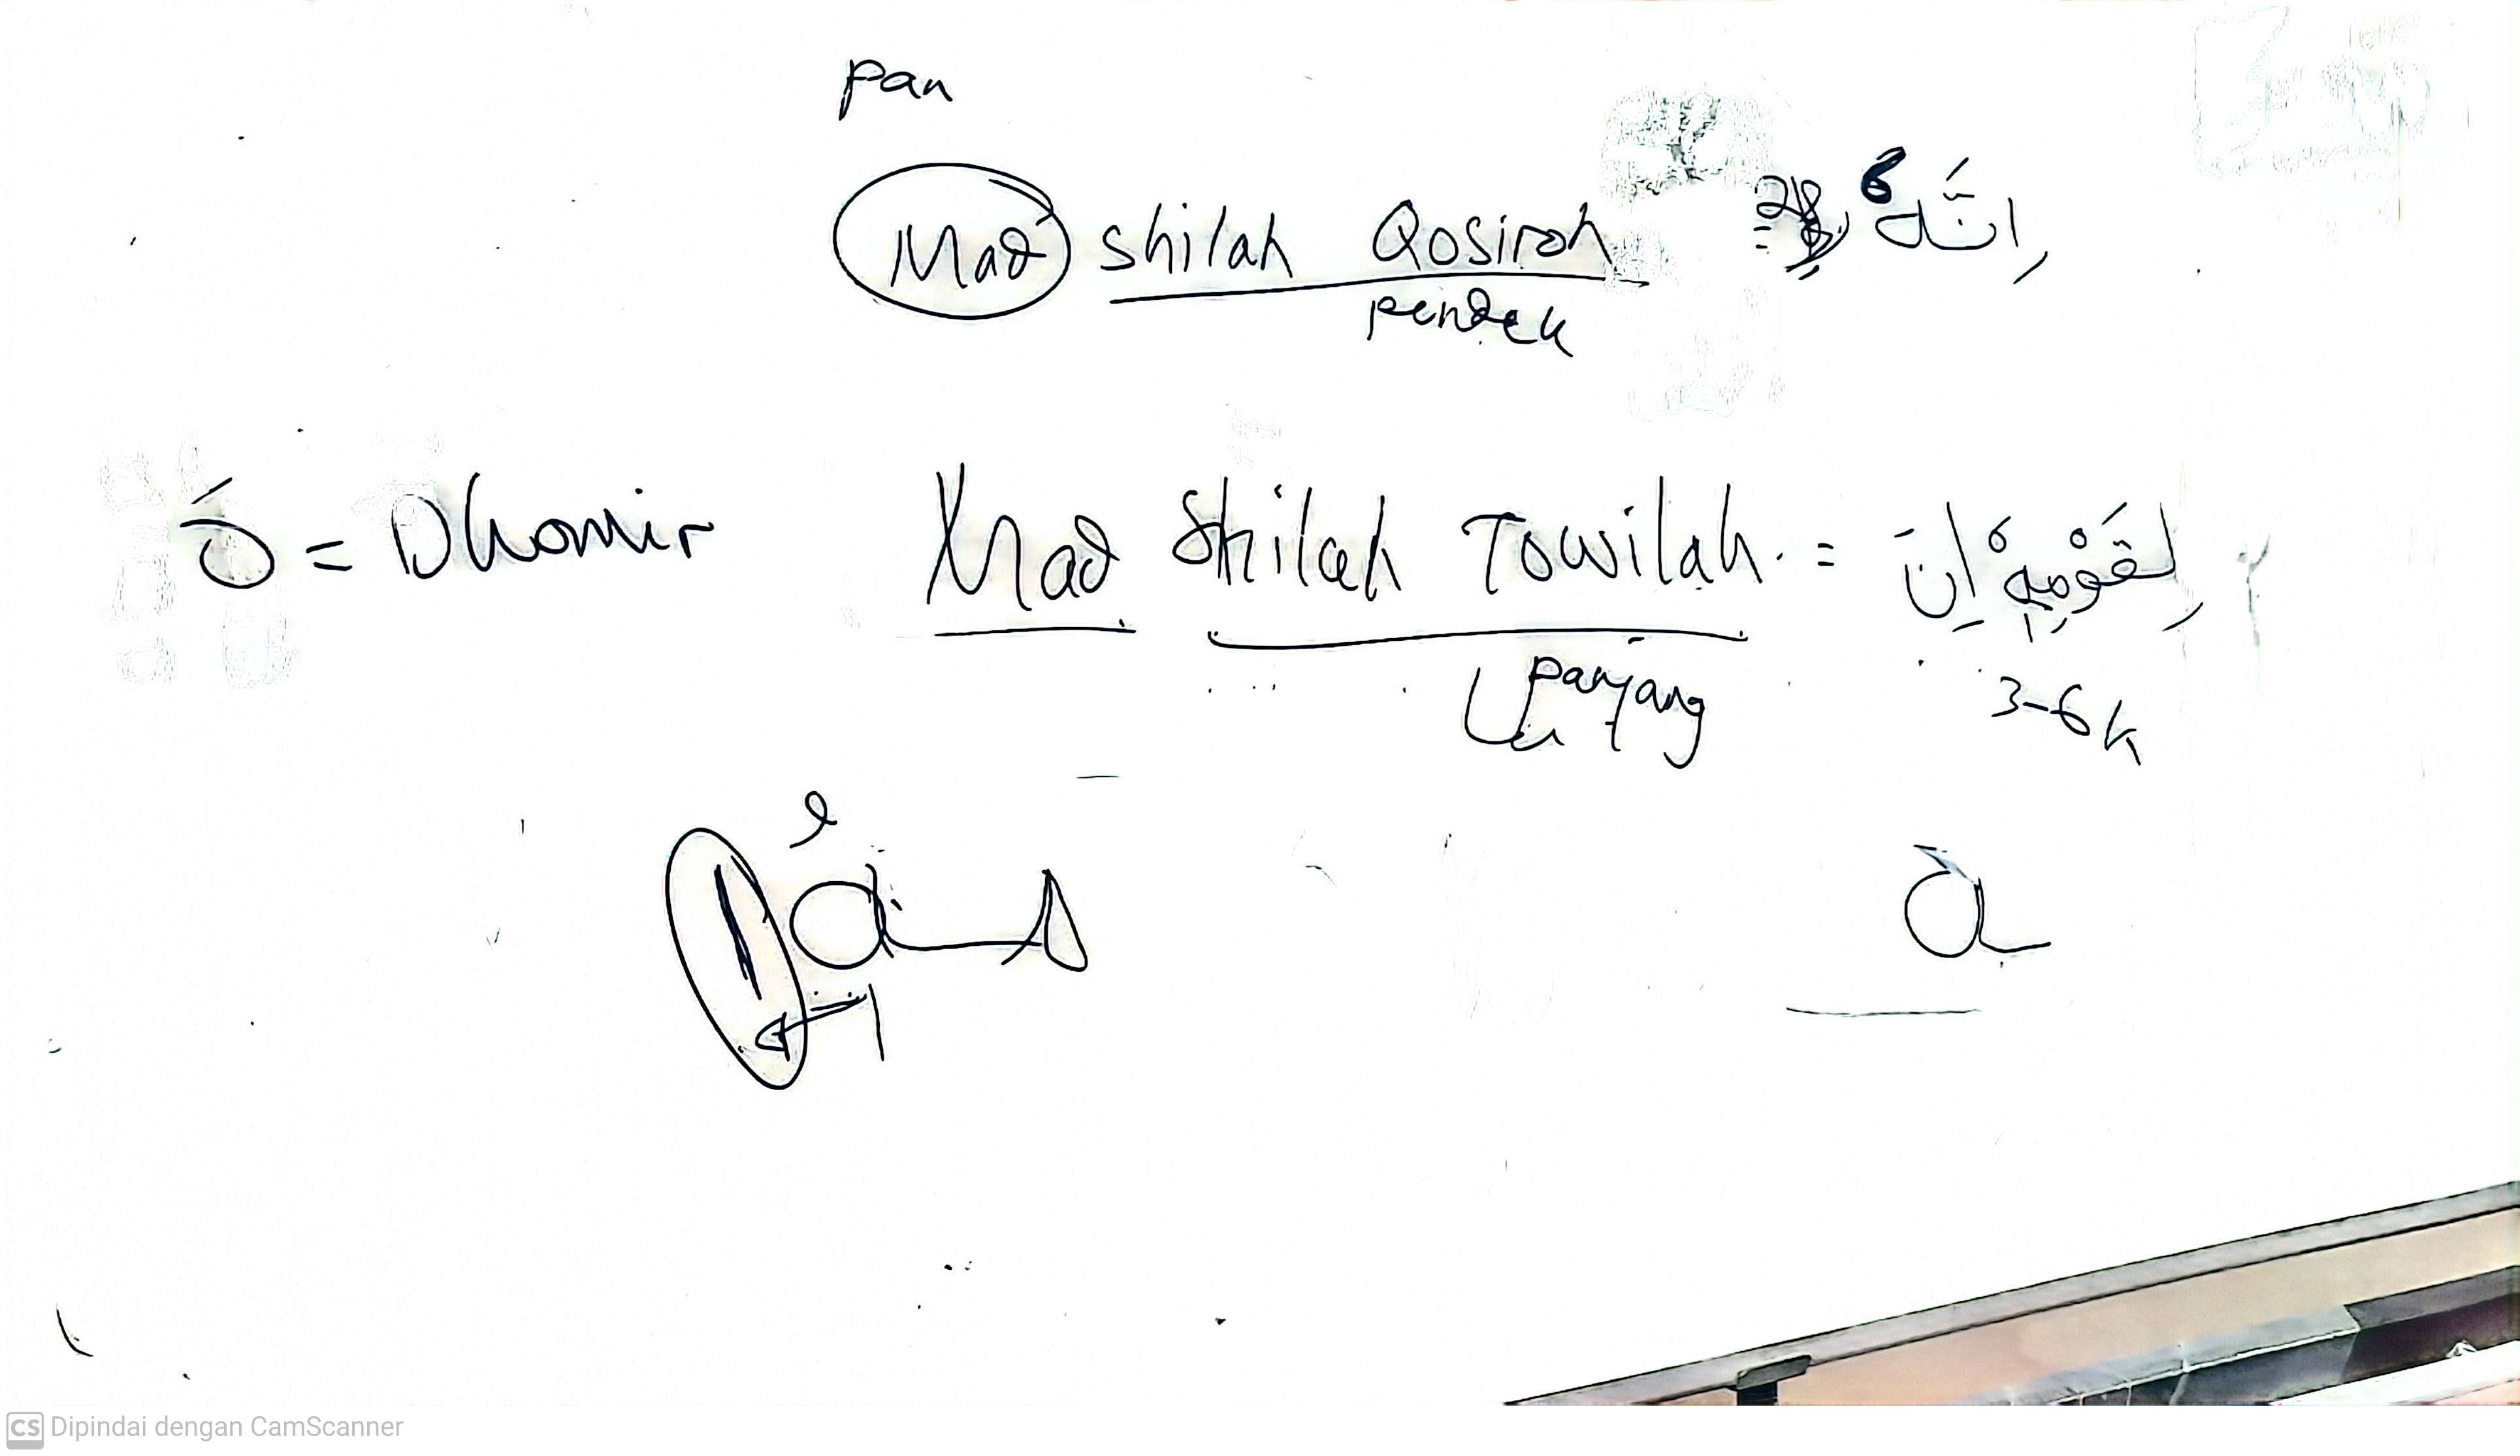 pan
Mad shilah Qosiroh اِنَّهٗ
pendek
هٗ = Dhomir Mad Shilah Towilah = لِقَوْمِهٖ اِنَّ
panjang
3-6 k
CS Dipindai dengan CamScanner